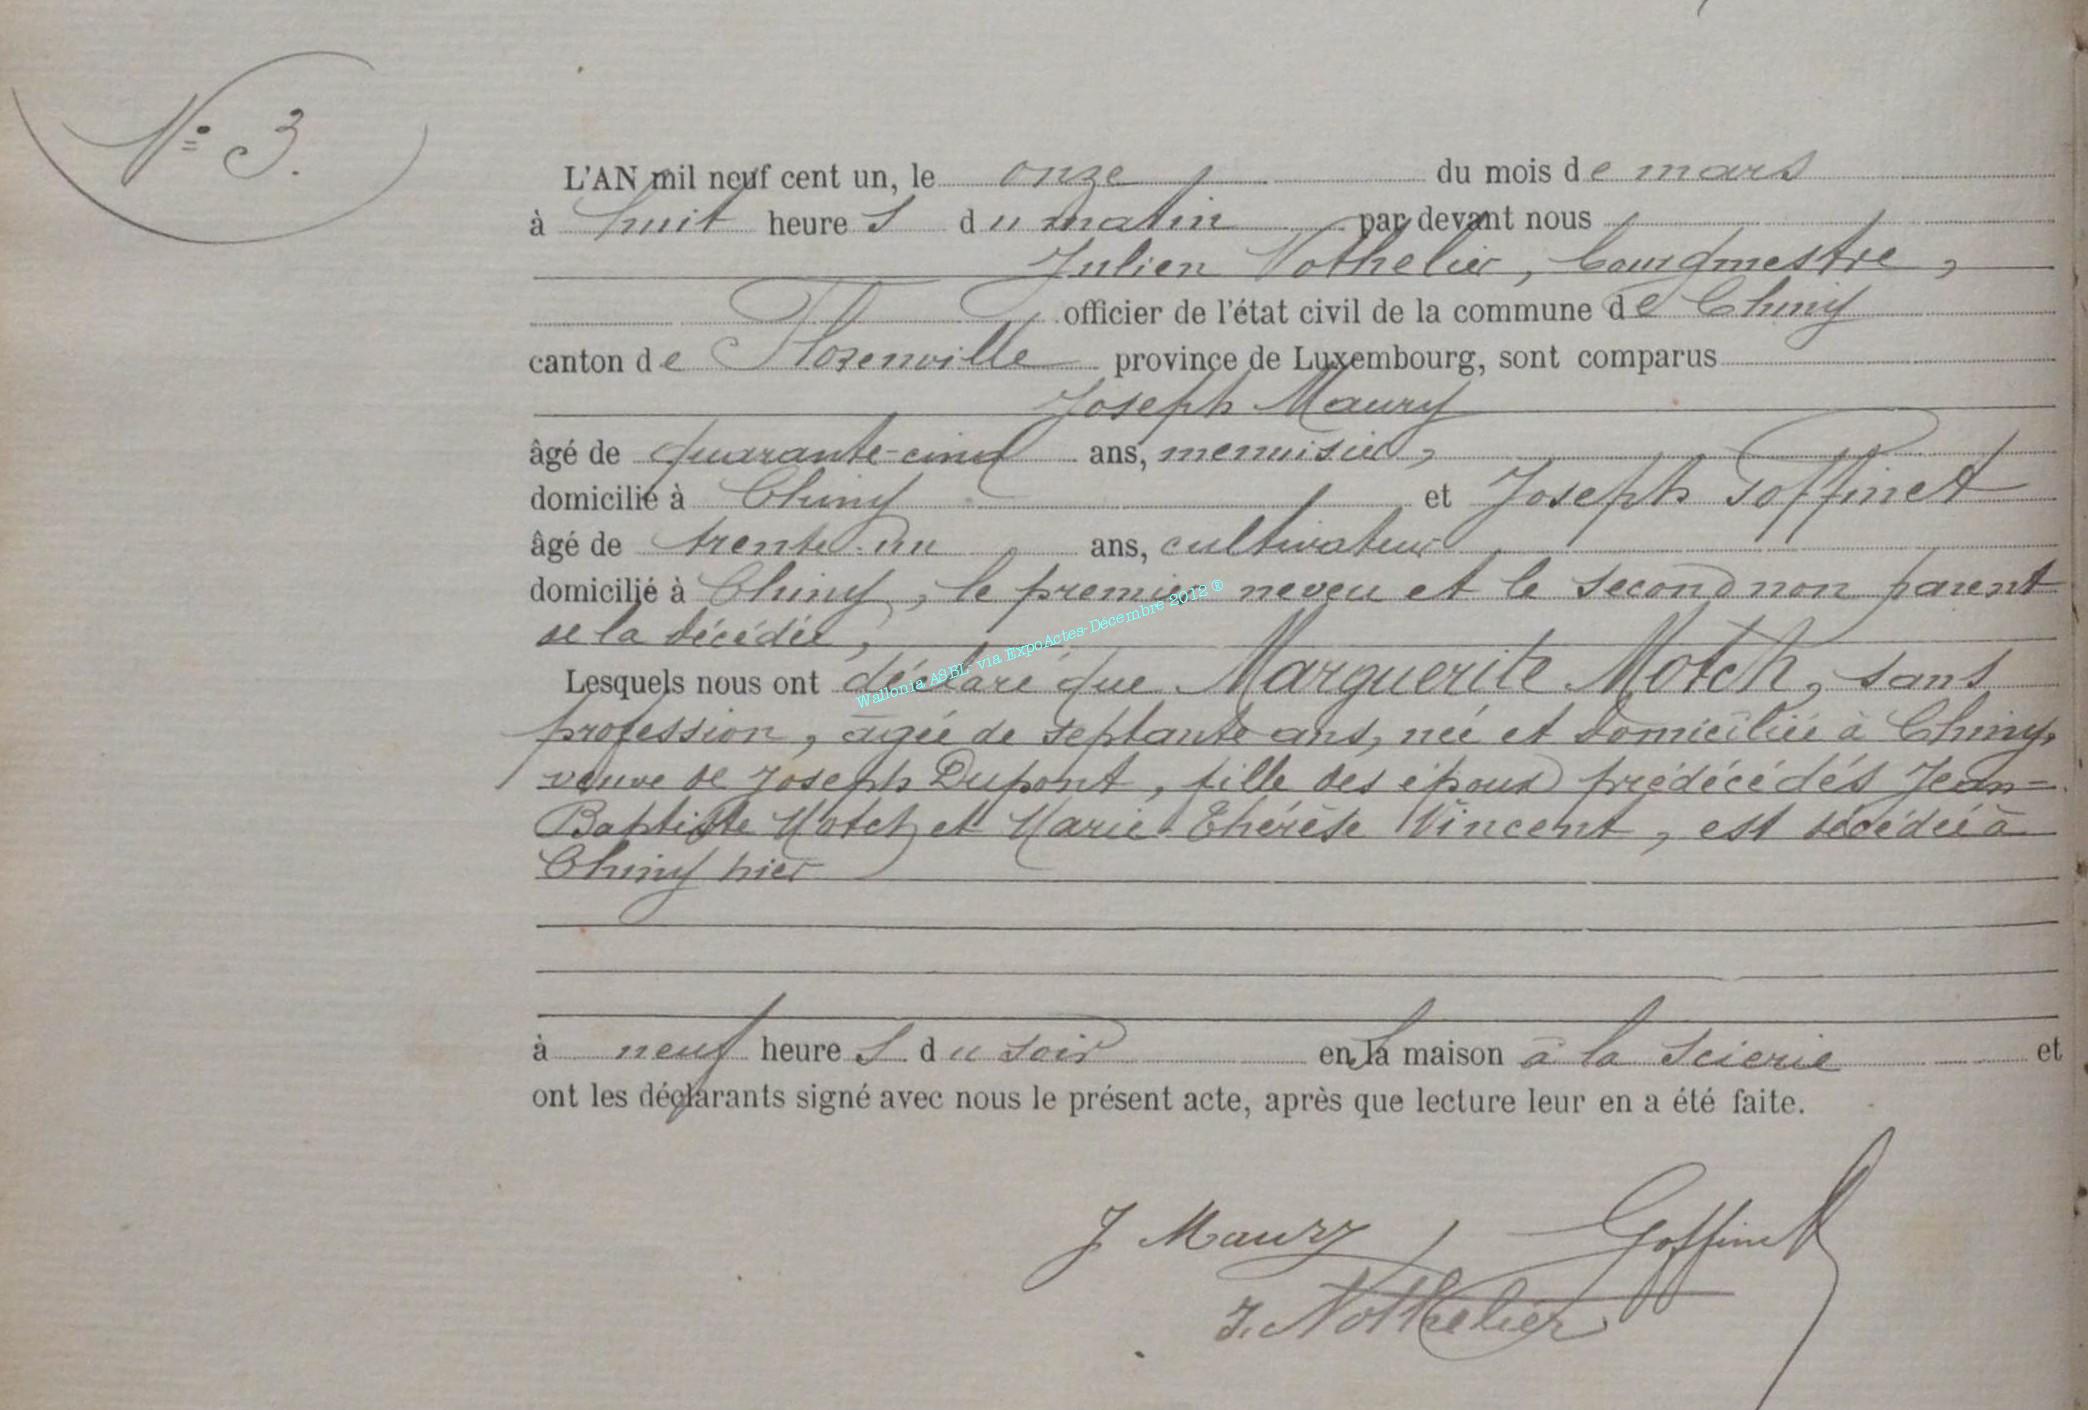 N° 3.
L'AN mil neuf cent un, le onze du mois de mars
à huit heures du matin par devant nous
Julien Nothelier, bourgmestre,
officier de l'état civil de la commune de Chiny
canton de Florenville province de Luxembourg, sont comparus
Joseph Maury
âgé de quarante-cinq ans, menuisier,
domicilié à Chiny et Joseph Goffinet
âgé de trente-un ans, cultivateur
domicilié à Chiny, le premier neveu et le second non parent
de la décédée,
Lesquels nous ont déclaré que Marguerite Motch, sans
profession, âgée de septante ans, née et domiciliée à Chiny,
veuve de Joseph Dupont, fille des époux prédécédés Jean-
Baptiste Motch et Marie-Thérèse Vincent, est décédée à
Chiny hier
à neuf heures du soir en sa maison à la scierie et
ont les déclarants signé avec nous le présent acte, après que lecture leur en a été faite.
J Maury Goffinet
J. Nothelier
Wallonia ASBL- via ExpoActes-Décembre 2012 ®